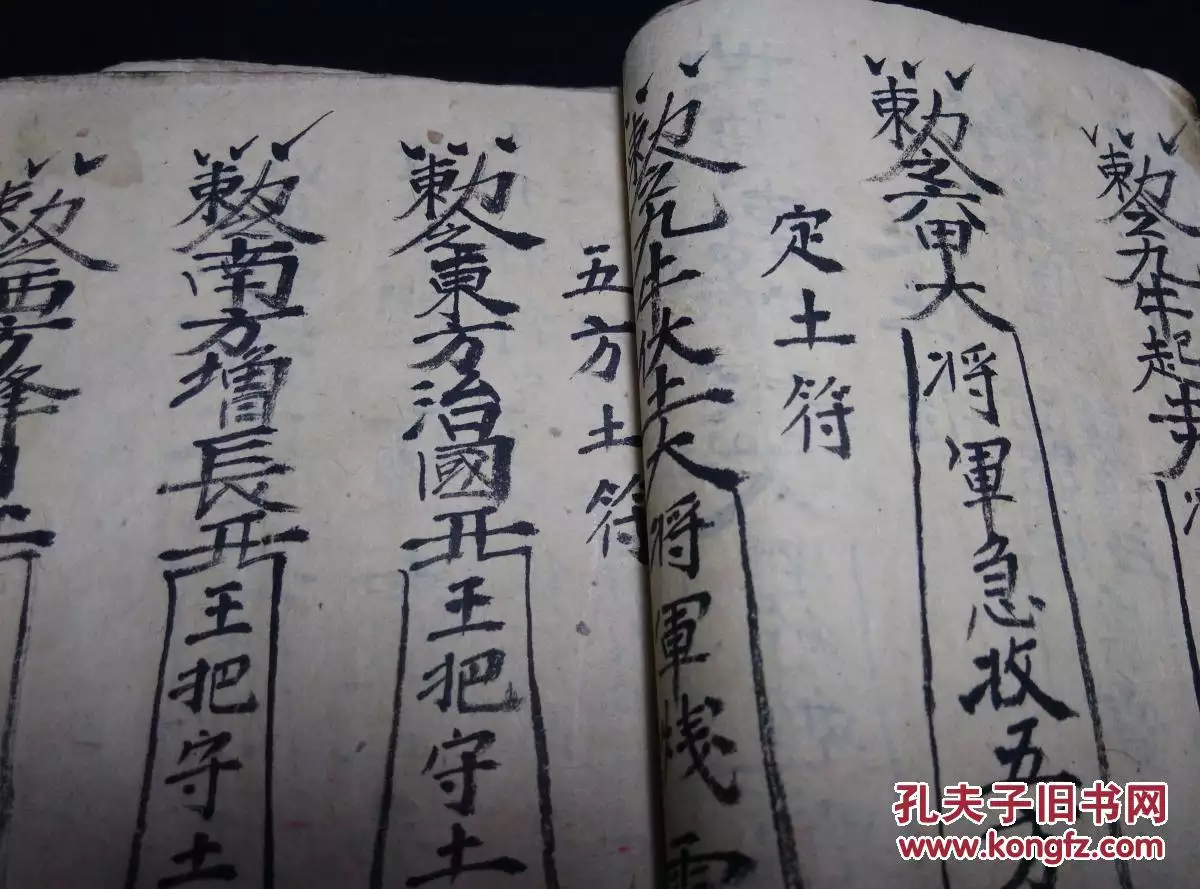 勅令九牛起
勅令六甲大将軍急收五方
定土符
勅令九牛伏土大将軍
五方土符
勅令東方治國王把守土
勅令南方增長王把守土
勅令西方
孔夫子旧书网
www.kongfz.com